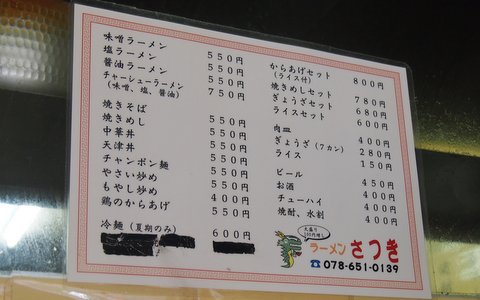 味噌ラーメン 550円
塩ラーメン 550円
醬油ラーメン 550円
チャーシューラーメン 750円
(味噌、塩、醬油)
焼きそば 550円
焼きめし 550円
中華丼 550円
天津丼 550円
チャンポン麺 550円
やさい炒め 550円
もやし炒め 400円
鶏のからあげ 550円
冷麺(夏期のみ) 600円
からあげセット 800円
(ライス付)
焼きめしセット 780円
ぎょうざセット 680円
ライスセット 600円
肉皿 400円
ぎょうざ(7カン) 280円
ライス 150円
ビール 450円
お酒 400円
チューハイ 400円
焼酎、水割 400円
大盛り
100円増し
ラーメン さつき
☎078-651-0139